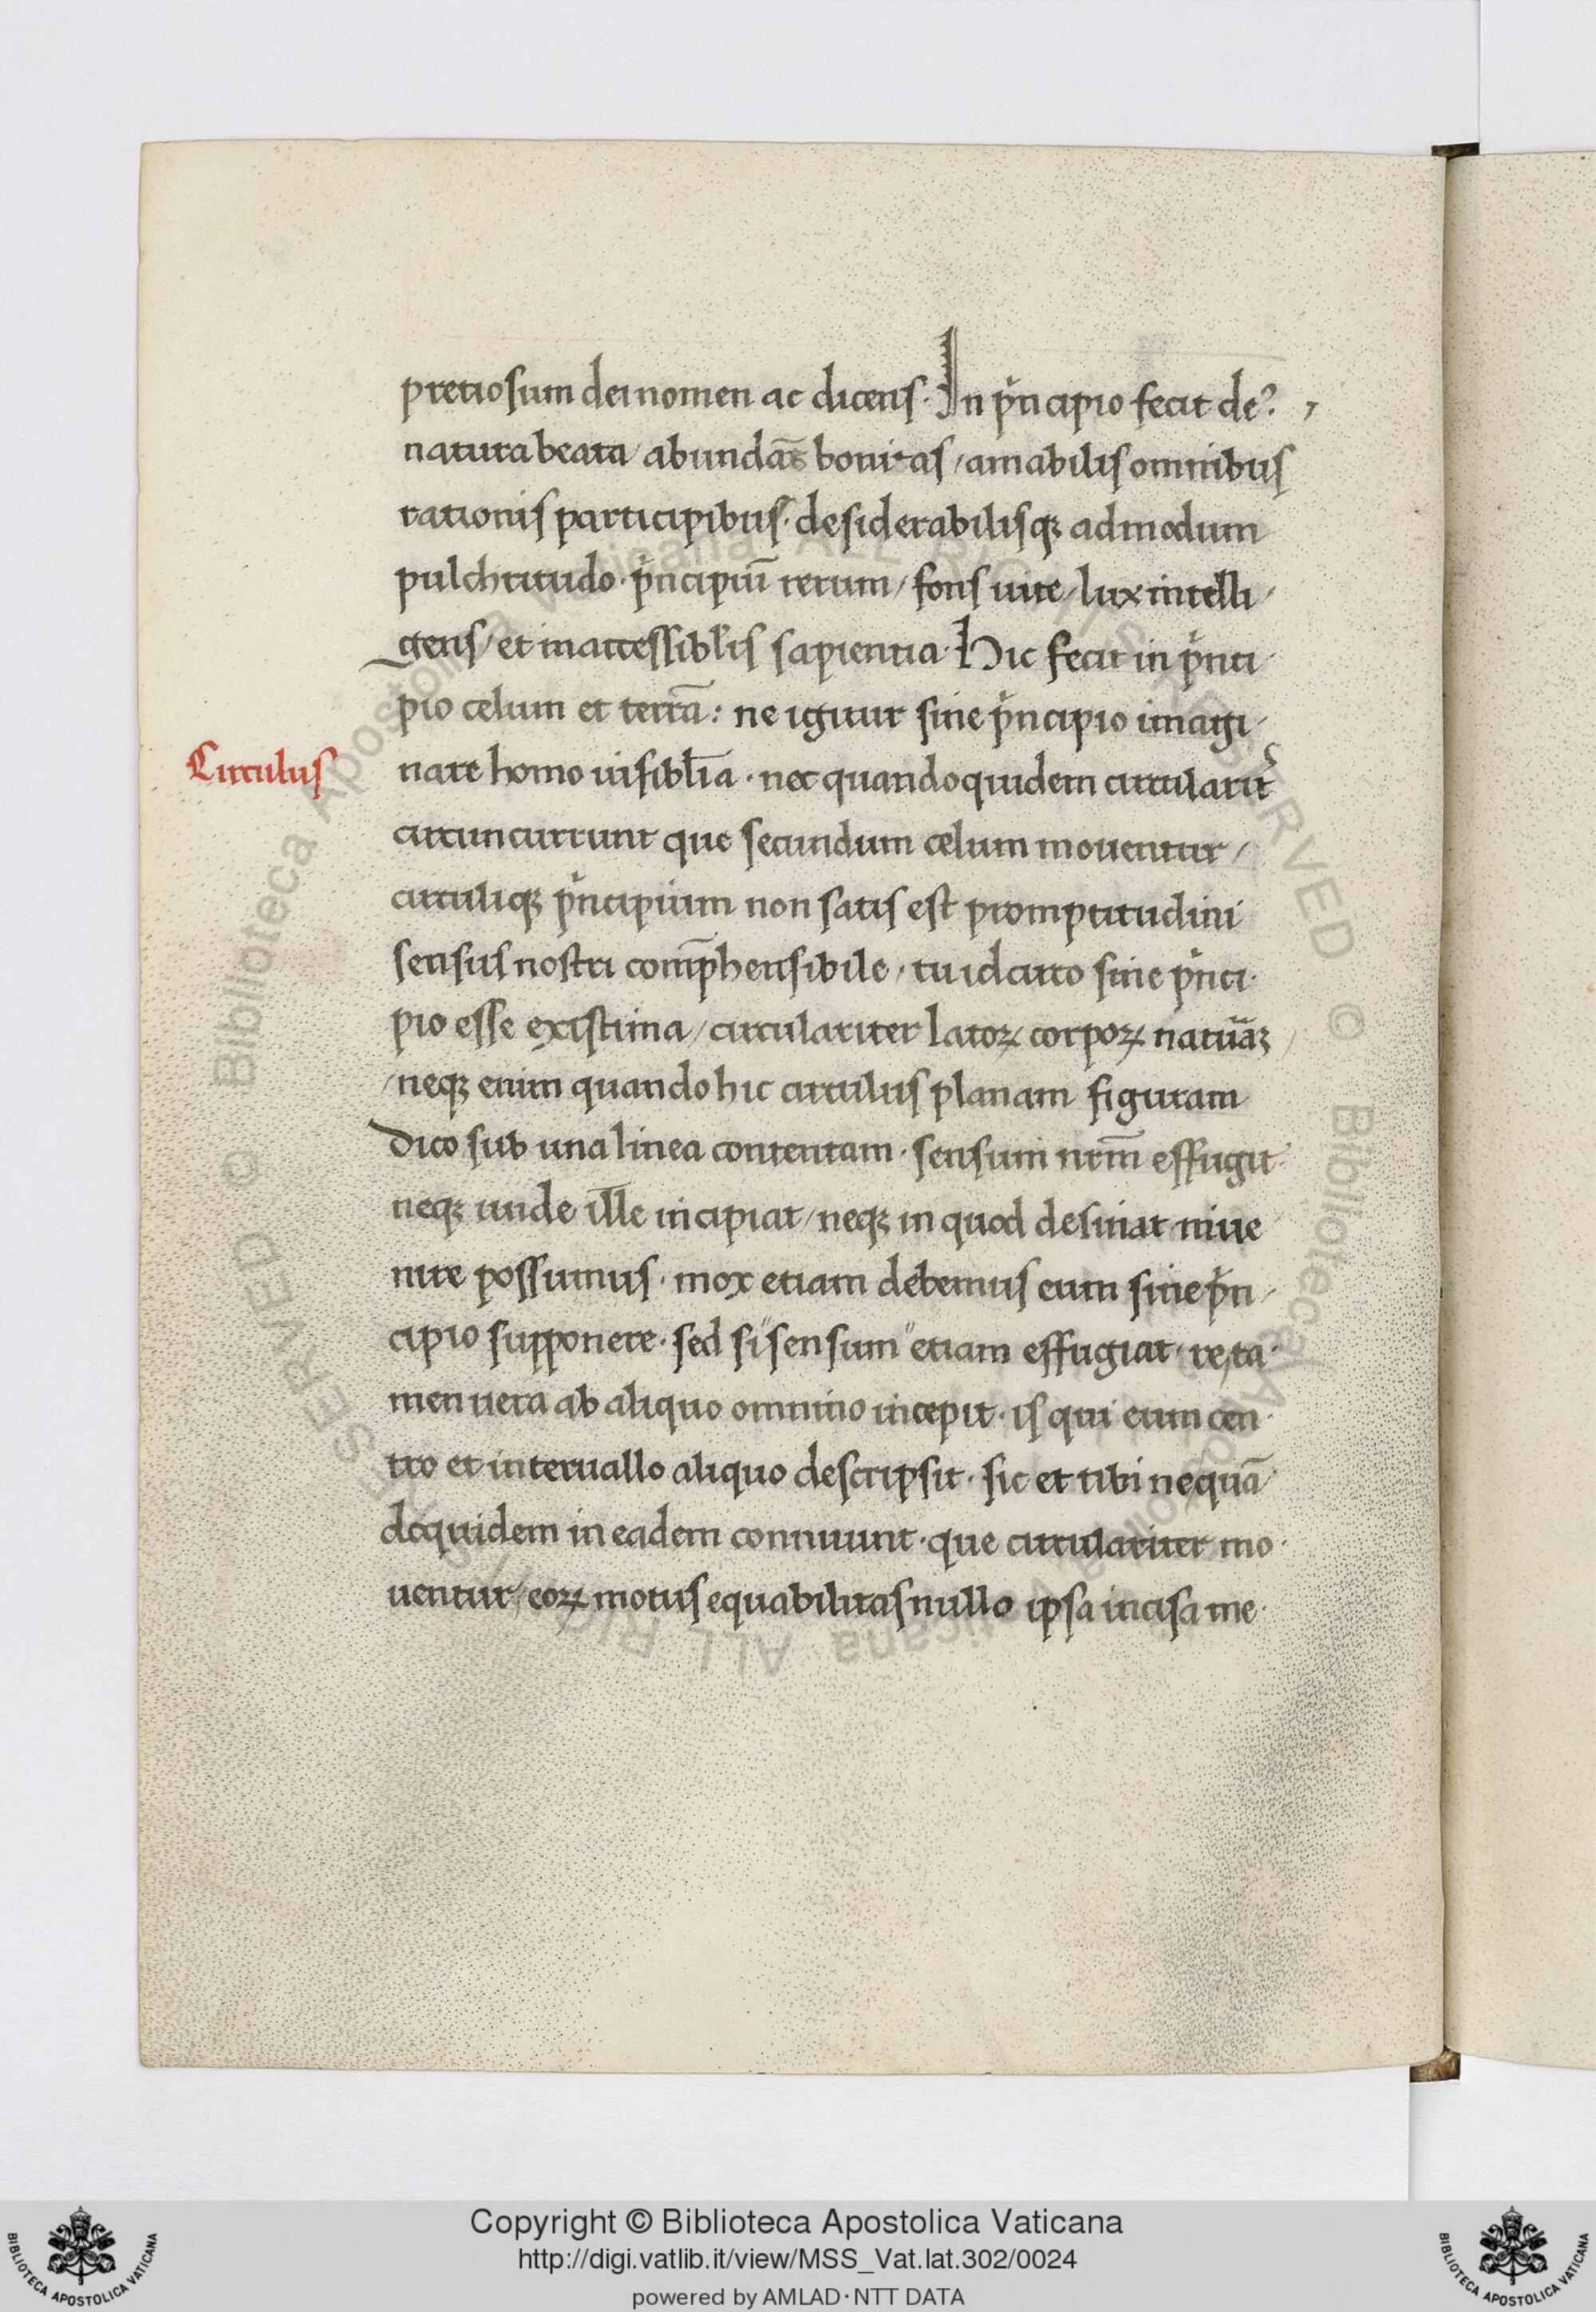 pretiosum dei nomen ac dicens · In pͥncipio fecit deꝰ ·
natura beata / abundās bonitas / amabilis omnibus
rationis participibus · desiderabilisqꝫ admodum
pulchritudo · pͥncipiū rerum / fons uite / lux intelli /
gens / et inaccessibl̓is sapientia · Hic fecit in pͥnci
pio celum et terrā : ne igitur sine pͥncipio imagi /
Circulus
nare homo uisibl̓ia · nec quandoquidem circularit̓
circuncurrunt que secundum celum mouentur /
circuliqꝫ pͥncipium non satis est promptitudini
sensus nostri com̄p̄hensibile / tu idcirco sine pͥnci·
pio esse existima / circulariter latoꝝ corpoꝝ natuᷓꝫ /
/ neqꝫ enim quando hic circulus planam figuram
dico sub una linea contentam · sensum nr̄m effugit
neqꝫ unde ille incipiat / neqꝫ in quod desinat inue
nire possumus · mox etiam debemus eum sine pͥn /
cipio supponere · sed si "sensum" etiam effugiat · re, ta·
men uera ab aliquo omnino incepit · is qui eum cen·
tro et interuallo aliquo descripsit · sic et tibi ne quā
doquidem in eadem conniuunt · que circulariter mo·
uentur / eoꝝ motus equabilitas nullo ipsa incisa me·
Copyright © Biblioteca Apostolica Vaticana
http://digi.vatlib.it/view/MSS_Vat.lat.302/0024
powered by AMLAD · NTT DATA
BIBLIOTECA APOSTOLICA VATICANA
BIBLIOTECA APOSTOLICA VATICANA
© Biblioteca Apostolica Vaticana ALL RIGHTS RESERVED
© Biblioteca Apostolica Vaticana ALL RIGHTS RESERVED